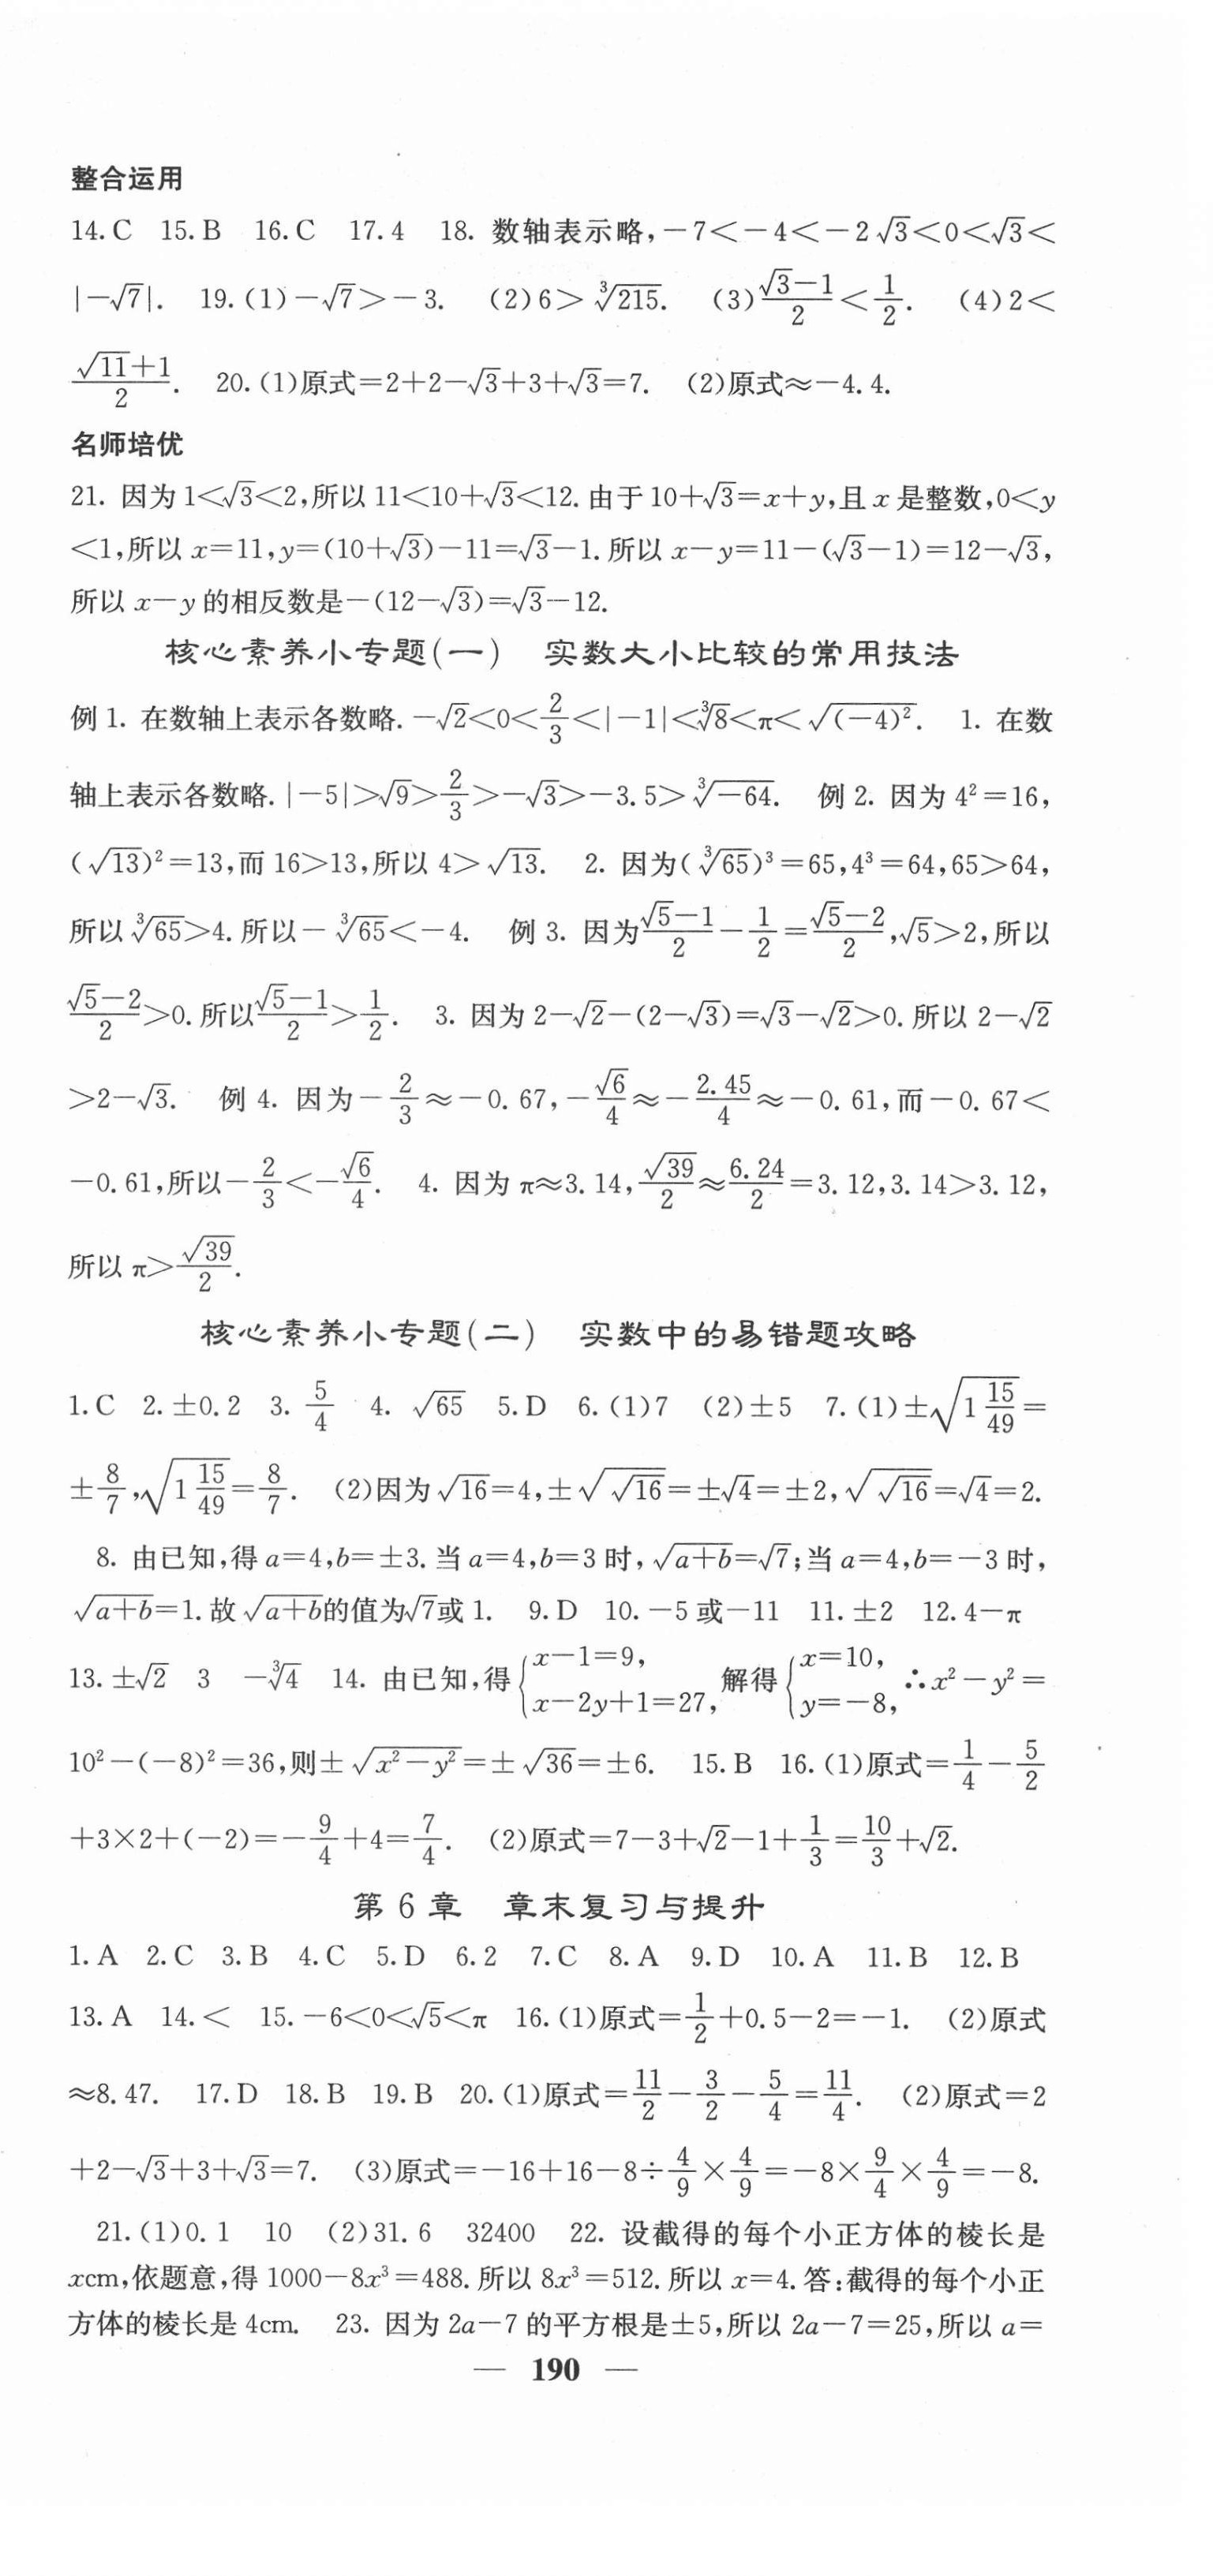 整合运用
14.C 15.B 16.C 17.4 18. 数轴表示略,－7＜－4＜－2√3＜0＜√3＜
|－√7|. 19.(1)－√7＞－3. (2)6＞∛215. (3)(√3－1)/2＜1/2. (4)2＜
(√11＋1)/2. 20.(1)原式＝2＋2－√3＋3＋√3＝7. (2)原式≈－4.4.
名师培优
21. 因为1＜√3＜2,所以11＜10＋√3＜12.由于10＋√3＝x＋y,且x是整数,0＜y
＜1,所以x＝11,y＝(10＋√3)－11＝√3－1.所以x－y＝11－(√3－1)＝12－√3,
所以x－y的相反数是－(12－√3)＝√3－12.
核心素养小专题(一) 实数大小比较的常用技法
例1. 在数轴上表示各数略.－√2＜0＜2/3＜|－1|＜∛8＜π＜√(－4)². 1. 在数
轴上表示各数略.|－5|＞√9＞2/3＞－√3＞－3.5＞∛－64. 例2. 因为4²＝16,
(√13)²＝13,而16＞13,所以4＞√13. 2. 因为(∛65)³＝65,4³＝64,65＞64,
所以∛65＞4.所以－∛65＜－4. 例3. 因为(√5－1)/2－1/2＝(√5－2)/2,√5＞2,所以
(√5－2)/2＞0.所以(√5－1)/2＞1/2. 3. 因为2－√2－(2－√3)＝√3－√2＞0.所以2－√2
＞2－√3. 例4. 因为－2/3≈－0.67,－√6/4≈－2.45/4≈－0.61,而－0.67＜
－0.61,所以－2/3＜－√6/4. 4. 因为π≈3.14,√39/2≈6.24/2＝3.12,3.14＞3.12,
所以π＞√39/2.
核心素养小专题(二) 实数中的易错题攻略
1.C 2.±0.2 3. 5/4 4. √65 5.D 6.(1)7 (2)±5 7.(1)±√(1 15/49)＝
±8/7,√(1 15/49)＝8/7. (2)因为√16＝4,±√(√16)＝±√4＝±2,√(√16)＝√4＝2.
8. 由已知,得a＝4,b＝±3.当a＝4,b＝3时,√(a＋b)＝√7;当a＝4,b＝－3时,
√(a＋b)＝1.故√(a＋b)的值为√7或1. 9.D 10.－5或－11 11.±2 12.4－π
13.±√2 3 －∛4 14. 由已知,得{x－1＝9, x－2y＋1＝27, 解得{x＝10, y＝－8, ∴x²－y²＝
10²－(－8)²＝36,则±√(x²－y²)＝±√36＝±6. 15.B 16.(1)原式＝1/4－5/2
＋3×2＋(－2)＝－9/4＋4＝7/4. (2)原式＝7－3＋√2－1＋1/3＝10/3＋√2.
第6章 章末复习与提升
1.A 2.C 3.B 4.C 5.D 6.2 7.C 8.A 9.D 10.A 11.B 12.B
13.A 14.＜ 15.－6＜0＜√5＜π 16.(1)原式＝1/2＋0.5－2＝－1. (2)原式
≈8.47. 17.D 18.B 19.B 20.(1)原式＝11/2－3/2－5/4＝11/4. (2)原式＝2
＋2－√3＋3＋√3＝7. (3)原式＝－16＋16－8÷4/9×4/9＝－8×9/4×4/9＝－8.
21.(1)0.1 10 (2)31.6 32400 22. 设截得的每个小正方体的棱长是
xcm,依题意,得1000－8x³＝488.所以8x³＝512.所以x＝4.答:截得的每个小正
方体的棱长是4cm. 23. 因为2a－7的平方根是±5,所以2a－7＝25,所以a＝
— 190 —